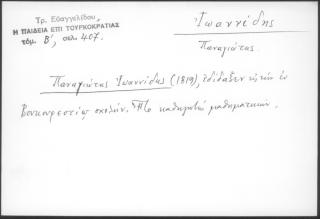 Τρ. Εὐαγγελίδου,
Η ΠΑΙΔΕΙΑ ΕΠΙ ΤΟΥΡΚΟΚΡΑΤΙΑΣ
τόμ. Β', σελ. 407.
Ἰωαννίδης
Παναγιώτης.
Παναγιώτης Ἰωαννίδης (1819), ἐδίδαξεν εἰς τὴν ἐν
Βουκουρεστίῳ σχολήν. Ἦτο καθηγητὴς μαθηματικῶν.